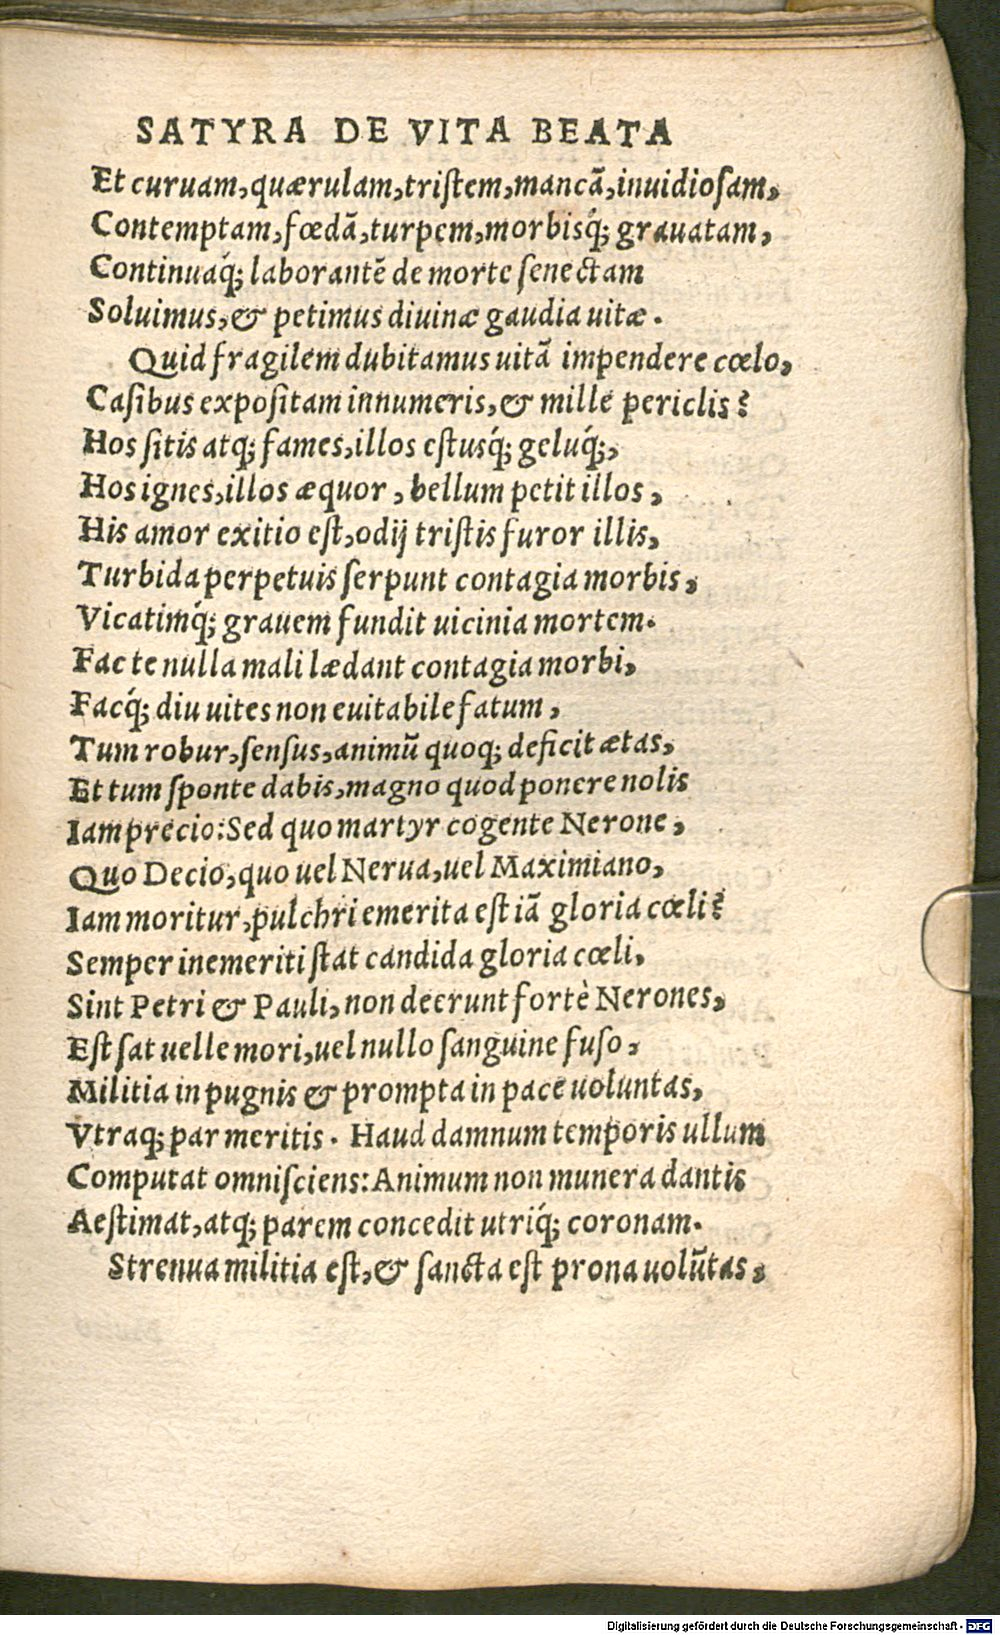 SATYRA DE VITA BEATA
Et curuam, quærulam, tristem, mancā, inuidiosam,
Contemptam, fœdā, turpem, morbisq́; grauatam,
Continuaq́; laborantē de morte senectam
Soluimus, & petimus diuinæ gaudia uitæ.
Quid fragilem dubitamus uitā impendere cœlo,
Casibus expositam innumeris, & mille periclis?
Hos sitis atq; fames, illos estusq́; geluq́;,
Hos ignes, illos æquor, bellum petit illos,
His amor exitio est, odij tristis furor illis,
Turbida perpetuis serpunt contagia morbis,
Vicatimq́; grauem fundit uicinia mortem.
Fac te nulla mali lædant contagia morbi,
Facq́; diu uites non euitabile fatum,
Tum robur, sensus, animū quoq; deficit ætas,
Et tum sponte dabis, magno quod ponere nolis
Iam precio: Sed quo martyr cogente Nerone,
Quo Decio, quo uel Nerua, uel Maximiano,
Iam moritur, pulchri emerita est iā gloria cœli?
Semper inemeriti stat candida gloria cœli,
Sint Petri & Pauli, non deerunt fortè Nerones,
Est sat uelle mori, uel nullo sanguine fuso,
Militia in pugnis & prompta in pace uoluntas,
Vtraq; par meritis. Haud damnum temporis ullum
Computat omnisciens: Animum non munera dantis
Aestimat, atq; parem concedit utriq́; coronam.
Strenua militia est, & sancta est prona uolūtas,
Digitalisierung gefördert durch die Deutsche Forschungsgemeinschaft - DFG